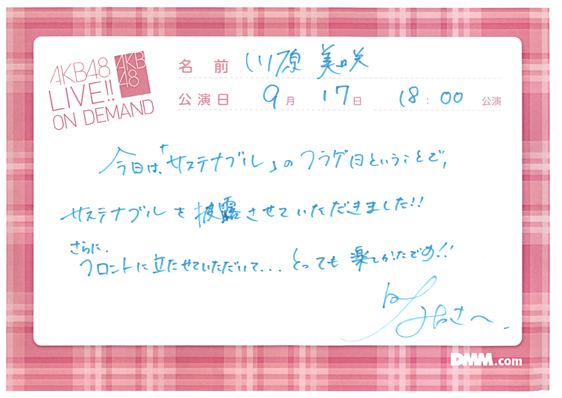 AKB48
LIVE!!
ON DEMAND
AKB
48
名前 川原 美咲
公演日 9月 17日 18:00 公演
今日は、「サステナブル」のフラゲ日ということで、
サステナブルを披露させていただきました!!
さらに、
フロントに立たせていただいて... とっても 楽しかったです!!
by みさき
DMM.com